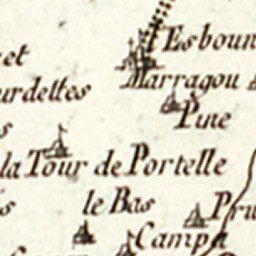 Esboun
et
Marragou
urdettes
Pine
s
la Tour de Portelle
le Bas
Pru
is
Campa